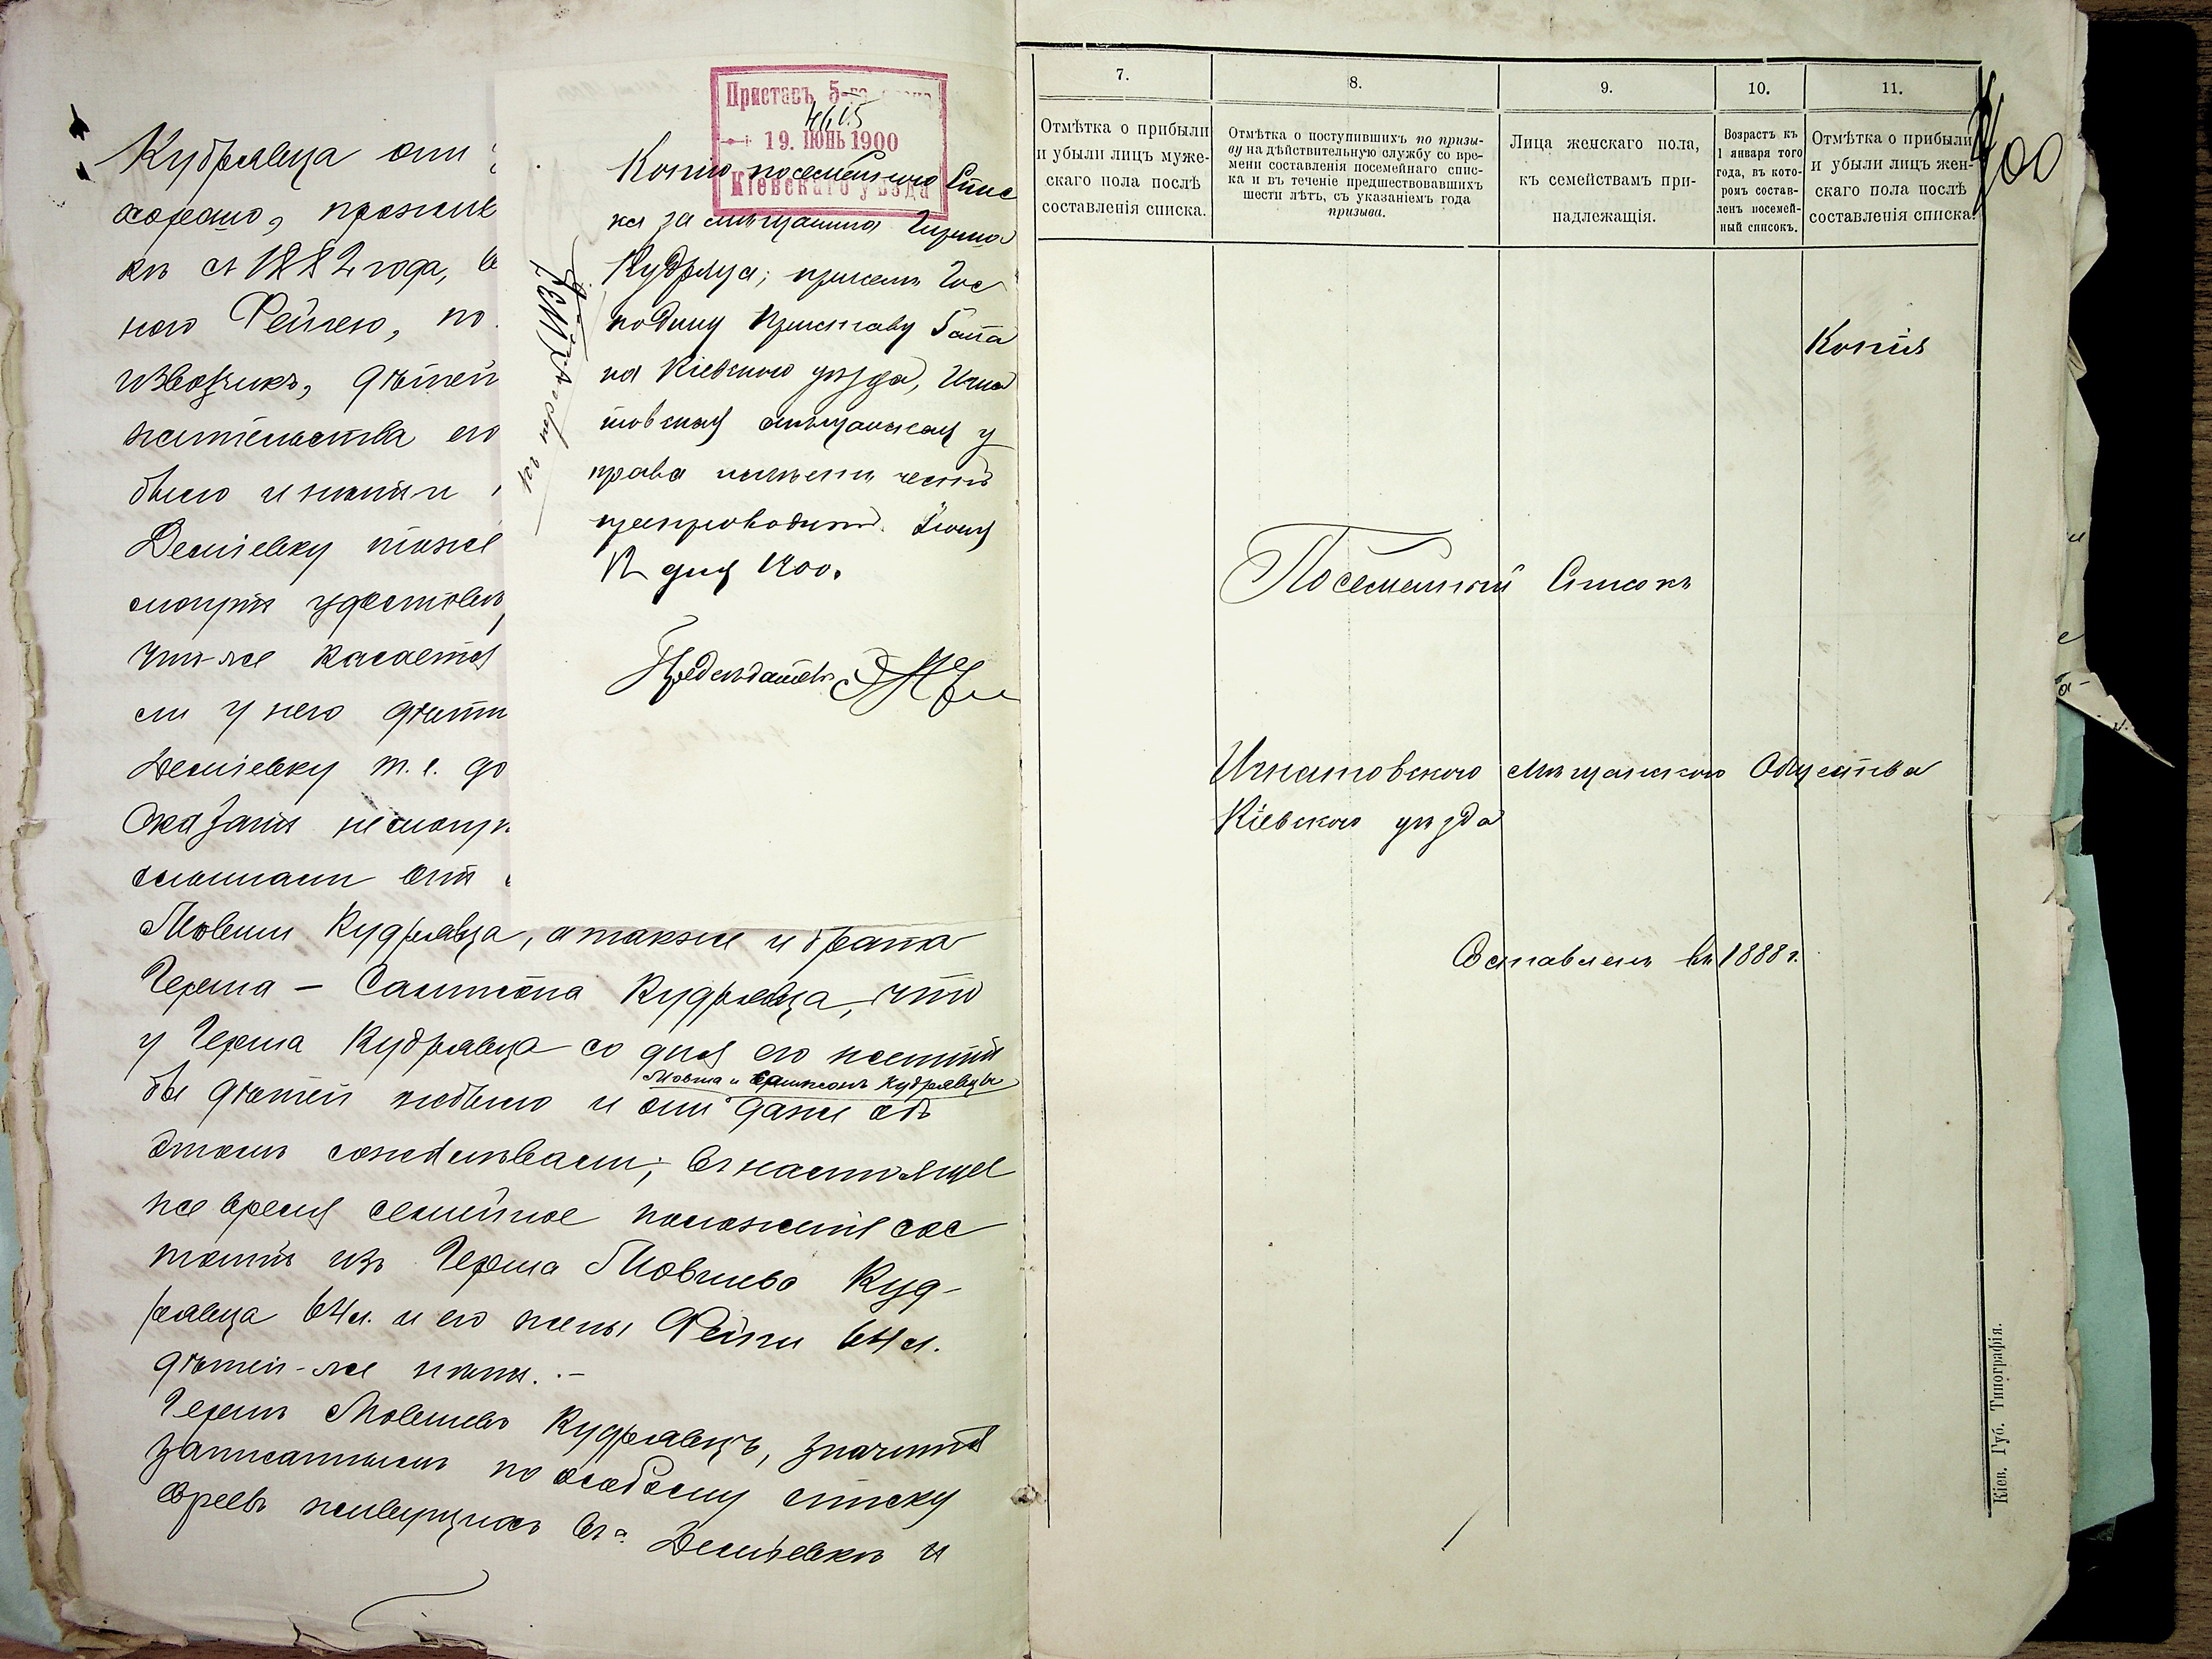 Кудрявца они
хорошо, прожив
кѣ съ 1882 года, в
ною Фейгею, по
извозчикъ, дѣтей
жительства его
было и никти
Деміевку также
могутъ удостовѣ
что-же касается
ли у него дѣти
Деміевку т. е. до
сказать не могу
слышали отъ
Мовши Кудрявца, а также и брата
Герша — Самсона Кудрявца, что
у Герша Кудрявца со дня его женить
бы дѣтей не было и они даже объ
Мовша и Самсонъ Кудрявцы
этомъ сожалѣвали; въ настоящее
же время семейное положеніе сос
тоитъ изъ Герша Мовшева Куд-
рявца 64 л. и его жены Фейги 64 л.
дѣтей-же нѣтъ. —
Гершъ Мовшевъ Кудрявецъ, значится
записаннымъ по особому списку
евреевъ живущихъ въ Деміевкѣ и
Приставъ 5-го стана
4615
19. ІЮНЬ 1900
Кіевскаго уѣзда
Копію посемейнаго Спис
ка за мѣщанина Герша
Кудрявца; приставу Гос
подину Приставу 5 ста
на Кіевскаго уѣзда, Игна
товская мѣщанская у
права имѣетъ честь
препроводить. Іюня
12 дня 1900.
Предсѣдатель
къ дѣлу
7.
8.
9.
10.
11.
Отмѣтка о прибыли
и убыли лицъ муже-
скаго пола послѣ
составленія списка.
Отмѣтка о поступившихъ по призы-
ву на дѣйствительную службу со вре-
мени составленія посемейнаго спис-
ка и въ теченіе предшествовавшихъ
шести лѣтъ, съ указаніемъ года
призыва.
Лица женскаго пола,
къ семействамъ при-
надлежащія.
Возрастъ къ
1 января того
года, въ кото-
ромъ состав-
ленъ посемей-
ный списокъ.
Отмѣтка о прибыли
и убыли лицъ жен-
скаго пола послѣ
составленія списка.
Копія
Посемейный Списокъ
Игнатовского мѣщанского Общества
Кіевского уѣзда
Составленъ въ 1888 г.
Кіев. Губ. Типографія.